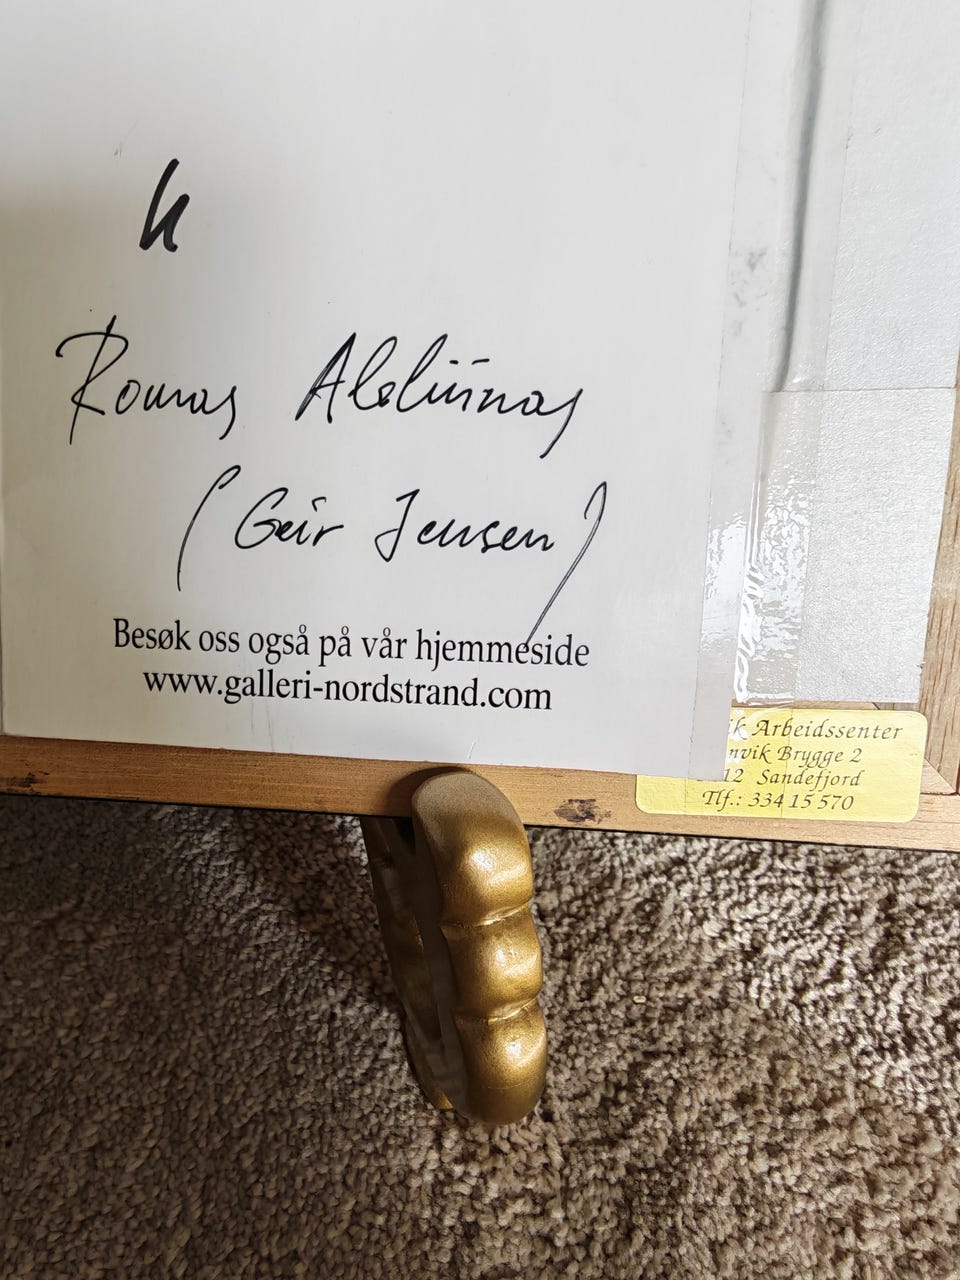 h
Romas
(Geir Jensen)
Besøk oss også på vår hjemmeside
www.galleri-nordstrand.com
Arbeidssenter
Brygge 2
12 Sandefjord
Tlf.: 334 15 570